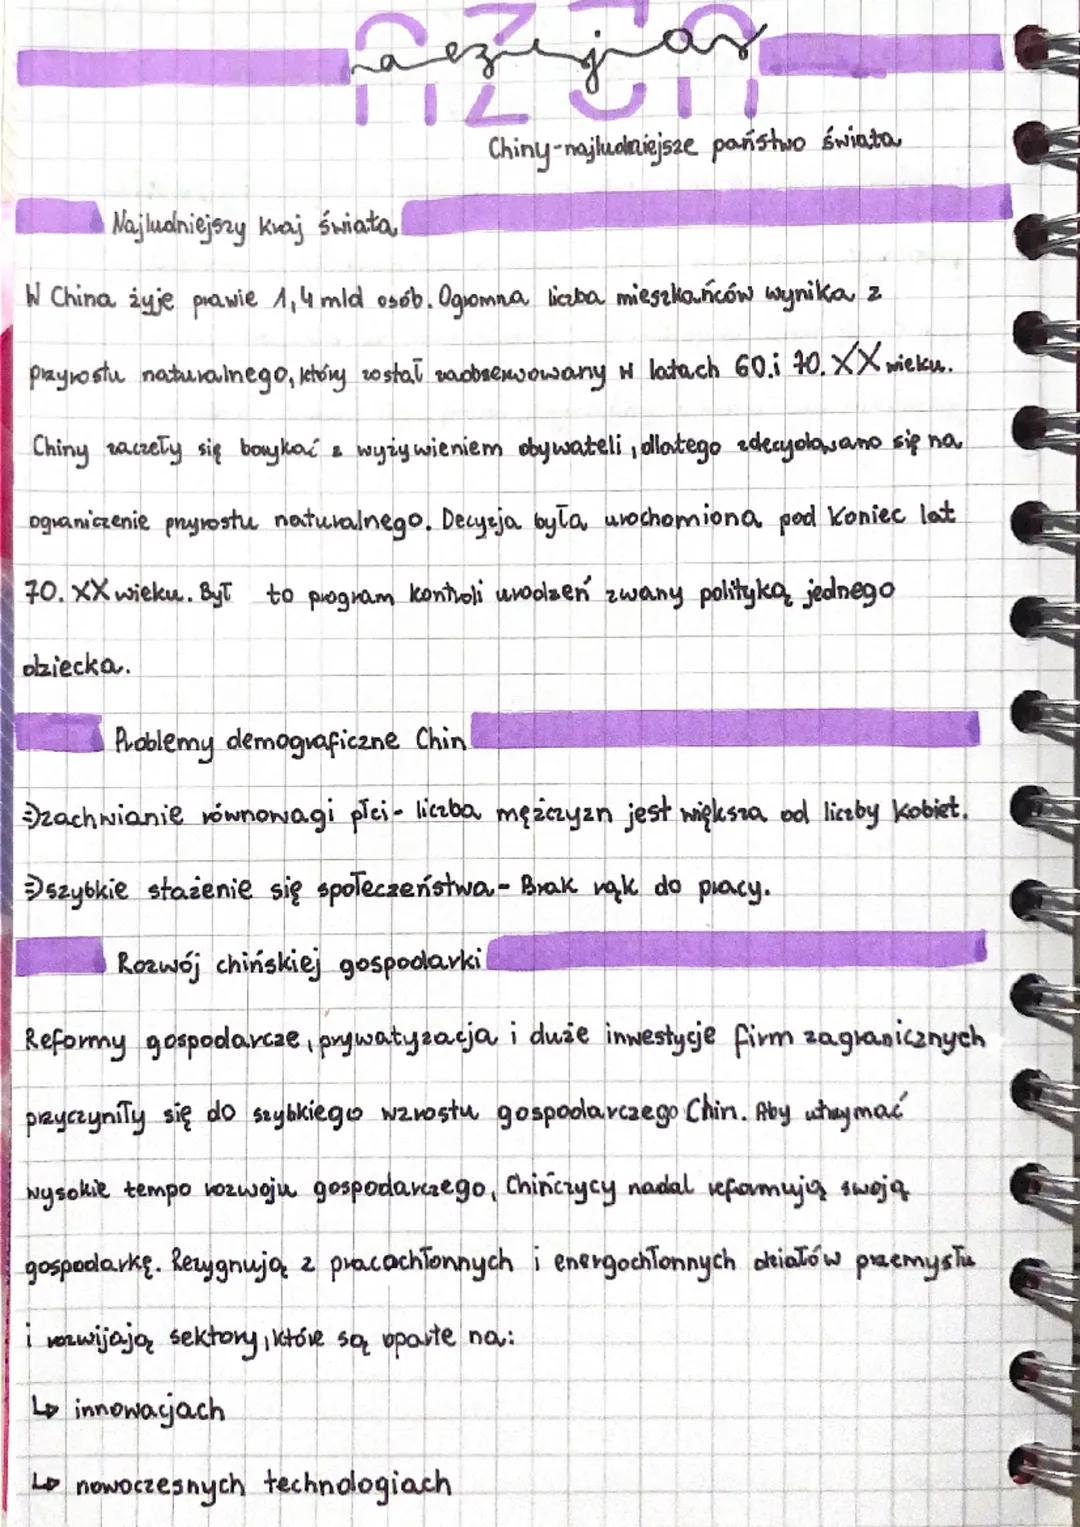 azja
Chiny-najludniejsze państwo świata
Najludniejszy kraj świata
W China żyje prawie 1,4 mld osób. Ogromna liczba mieszkańców wynika z
przyrostu naturalnego, który został zaobserwowany w latach 60.i 70. XX wieku.
Chiny zaczeły się borykać z wyżywieniem obywateli, dlatego zdecydowano się na
ograniczenie przyrostu naturalnego. Decyzja była urochomiona pod koniec lat
70. XX wieku. Był to program kontroli urodzeń zwany polityką jednego
dziecka.
Problemy demograficzne Chin
zachwianie równowagi płci- liczba mężczyzn jest większa od liczby kobiet.
szybkie stażenie się społeczeństwa- Brak rąk do pracy.
Rozwój chińskiej gospodarki
Reformy gospodarcze, prywatyzacja i duże inwestycje firm zagranicznych
przyczyniły się do szybkiego wzrostu gospodarczego Chin. Aby utrzymać
wysokie tempo rozwoju gospodarczego, Chińczycy nadal reformują swoją
gospodarkę. Rezygnują z pracochłonnych i energochłonnych działów przemysłu
i rozwijają sektory, które są oparte na:
↳ innowacjach
↳ nowoczesnych technologiach